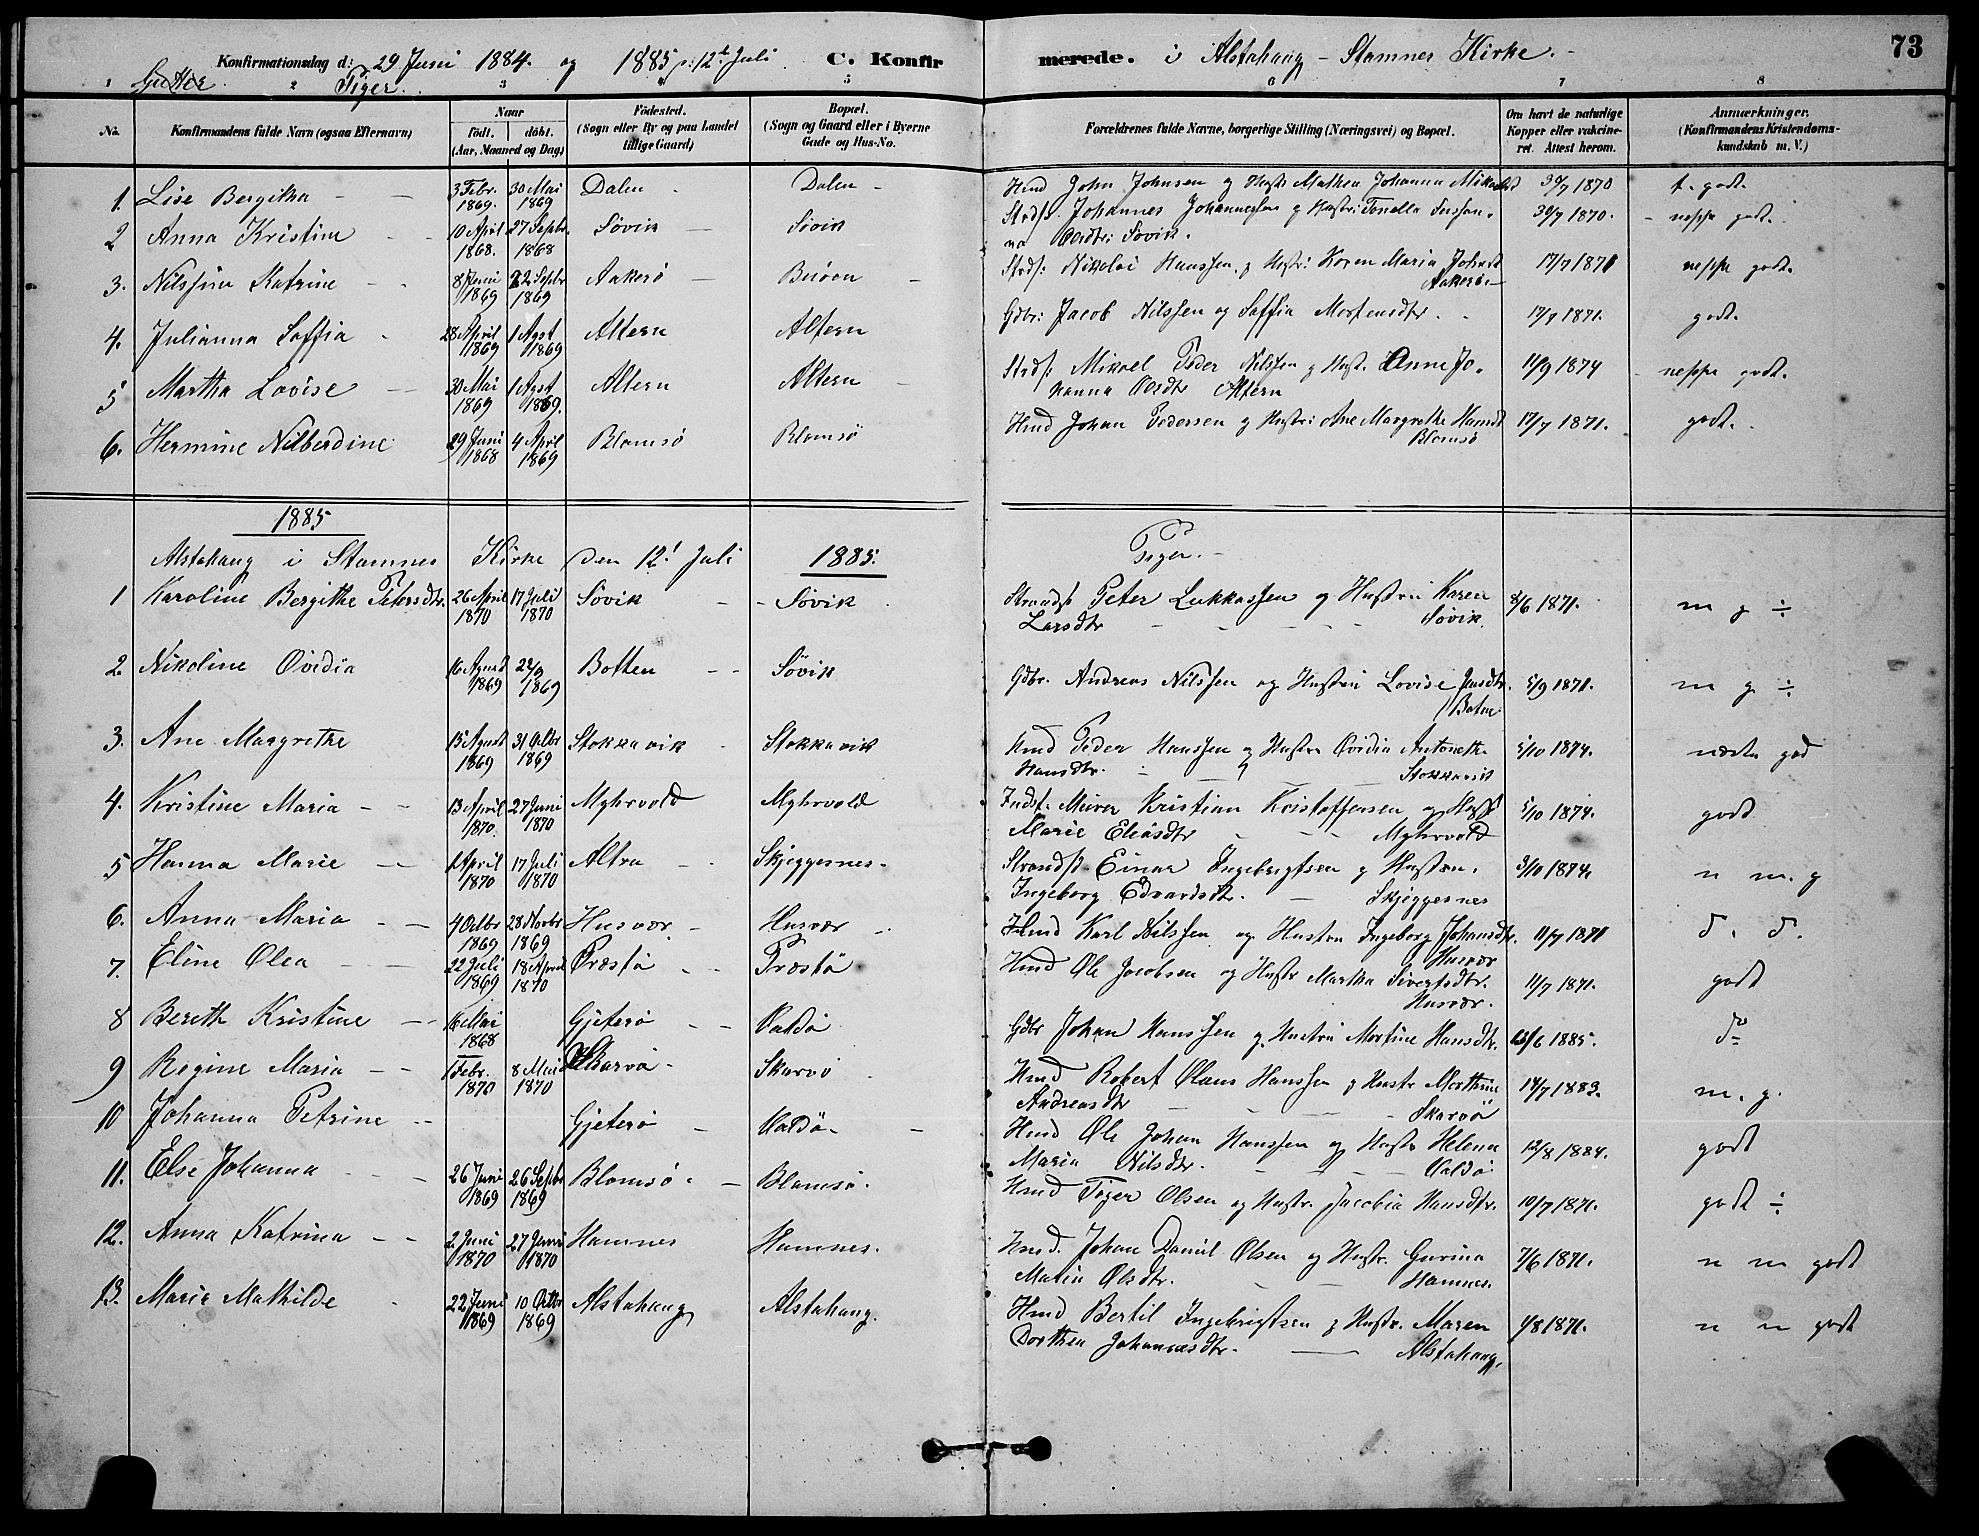 Konfirmationsdag d: 29 Juni 1884. og 1885 d: 12t Juli C. Konfirmerede. i Alstahaug - Stamnes Kirke. 73
1 2 Piger 3 4 5 6 7 8
No. Konfirmandens fulde Navn (ogsaa Efternavn) Naar födt. döbt. (Aar, Maaned og Dag) Födested. (Sogn eller By og paa Landet tillige Gaard) Bopæl. (Sogn og Gaard eller i Byerne Gade og Hus-No. Forældrenes fulde Navne, borgerlige Stilling (Næringsvei) og Bopæl. Om havt de naturlige Kopper eller vakcineret. Attest herom. Anmærkninger. (Konfirmandens Kristendomskundskab m. V.)
1. Lise Bergitha 3 Febr. 1869. 30 Mai 1869 Dalen Dalen Hmd John Johnsen og Hustr Mathea Johanna 30/7 1870 t. godt.
2 Anna Kristine 10 April 1868. 27 Septbr. 1868 Søvik Søvik Strds. Johannes Johannessen g Hustr: Tonella Susanna Søvik. 30/7 1870. neppe godt.
3. Nilsina Katrine 8 Juni 1869 22 Septbr 1869 Aakerø Strds: Nikolai Hanssen g Hustr: Karen Maria Johnsd Aakerø 17/7 1871 neppe godt.
4. Julianna Soffia 28 April 1869 1 Agst 1869 Altern Altern Gdbr: Jacob Nilssen og Soffia Mortensdtr. 17/7 1871. godt.
5 Martha Lovise 30 Mai 1869 1 Agst 1869. Altern Altern Strds: Mikael Peder Nilssen g Hustr. Anne Johanna Altern 11/9 1874 neppe godt.
6. Hermine Nilberdine 29 Juni 1868 4 April 1869 Blomsø Blomsø Hmd Johan Pedersen g Hustr: Ane Margrethe Hansd Blomsø 17/7 1871. godt.
1885
Alstahaug i Stamnes Kirke den 12t Juli 1885. Piger.
1 Karoline Bergithe Petersdtr. 26 April 1870 17 Juli 1870 Søvik Søvik Strands Peter Lukkassen g Hustru Karen Larsdtr Søvik. 8/6 1871. m g ÷
2. Nikoline Ovidia 16 August 1869 1869 Botten Søvik Gdbr. Andreas Nilssen og Hustru Lovise Jensdtr. Boten 5/9 1871. m g ÷
3. Ane Margrethe 15 August 1869 31 Octbr 1869 Stokkavik Stokkavik Hmd Peder Hanssen g Hustru Ovidia Antoneth. Hansdtr. Stokkavik 5/10 1874. næsten god
4. Kristine Maria 13 April 1870. 27 Juni 1870 Myhrvold Myhrvold Indst. Murer Kristian Kristoffersen og Hustr Marie Eliasdtr Myhrvold 5/10 1874. godt
5 Hanna Marie April 1870 17 Juli 1870 Altra Skjeggesnes. Strands Einar Ingebrigtsen g Hustru. Ingeborg Edvardsdt. Skjeggesnes 3/10 1874. n m. g
6. Anna Maria 4 Octbr 1869 28 Novbr 1869 Husvær Husvær Hmd Karl Nilssen og Hustru Ingeborg Johansdtr. Husvær 11/7 1871 d. d.
7. Eline Olea 22 Juli 1869 18 April 1870 Præstø Præstø Hmd Ole Jacobsen og Hustr Martha Sivertsdtr. Husvær. 11/7 1871. godt
8 Bereth Kristine 16 Mai 1868 Gjeterø Valdø Gdbr Johan Hanssen g Hustru Martine Hansdtr. 1885. do
9 Regine Maria 1 Febr. 1870 8 Mai 1870 Skarvø Skarvø Hmd Robert Olaus Hanssen g Hustr Marthine Andreasdtr Skarvø 14/7 1883. m. g.
10 Johanna Petrine Gjeterø Valdø Hmd Ole Johan Hanssen og Hustr Helena Maria Nilsdtr. Valdø 12/8 1884. godt
11. Else Johanna 26 Juni 1869 26 Septbr 1869 Blomsø Blomsø. Hmd Peder Olsen og Hustr. Jacobia Hansdtr. 10/7 1871. godt ÷
12. Anna Katrina 2 Juni 1870 27 Juni 1870 Hamnes Hamnes. Hmd. Johan Daniel Olsen og Hustr. Gurina Maria Olsdtr. Hamnes. 7/6 1871. n m godt
13. Marie Mathilde 22 Juni 1869 10 Octbr 1869 Alstahaug Alstahaug. Hmd Bertil Ingebrigtsen g Hustr. Maren Dorthea Johannesdtr. Alstahaug. 1/8 1871. n n godt